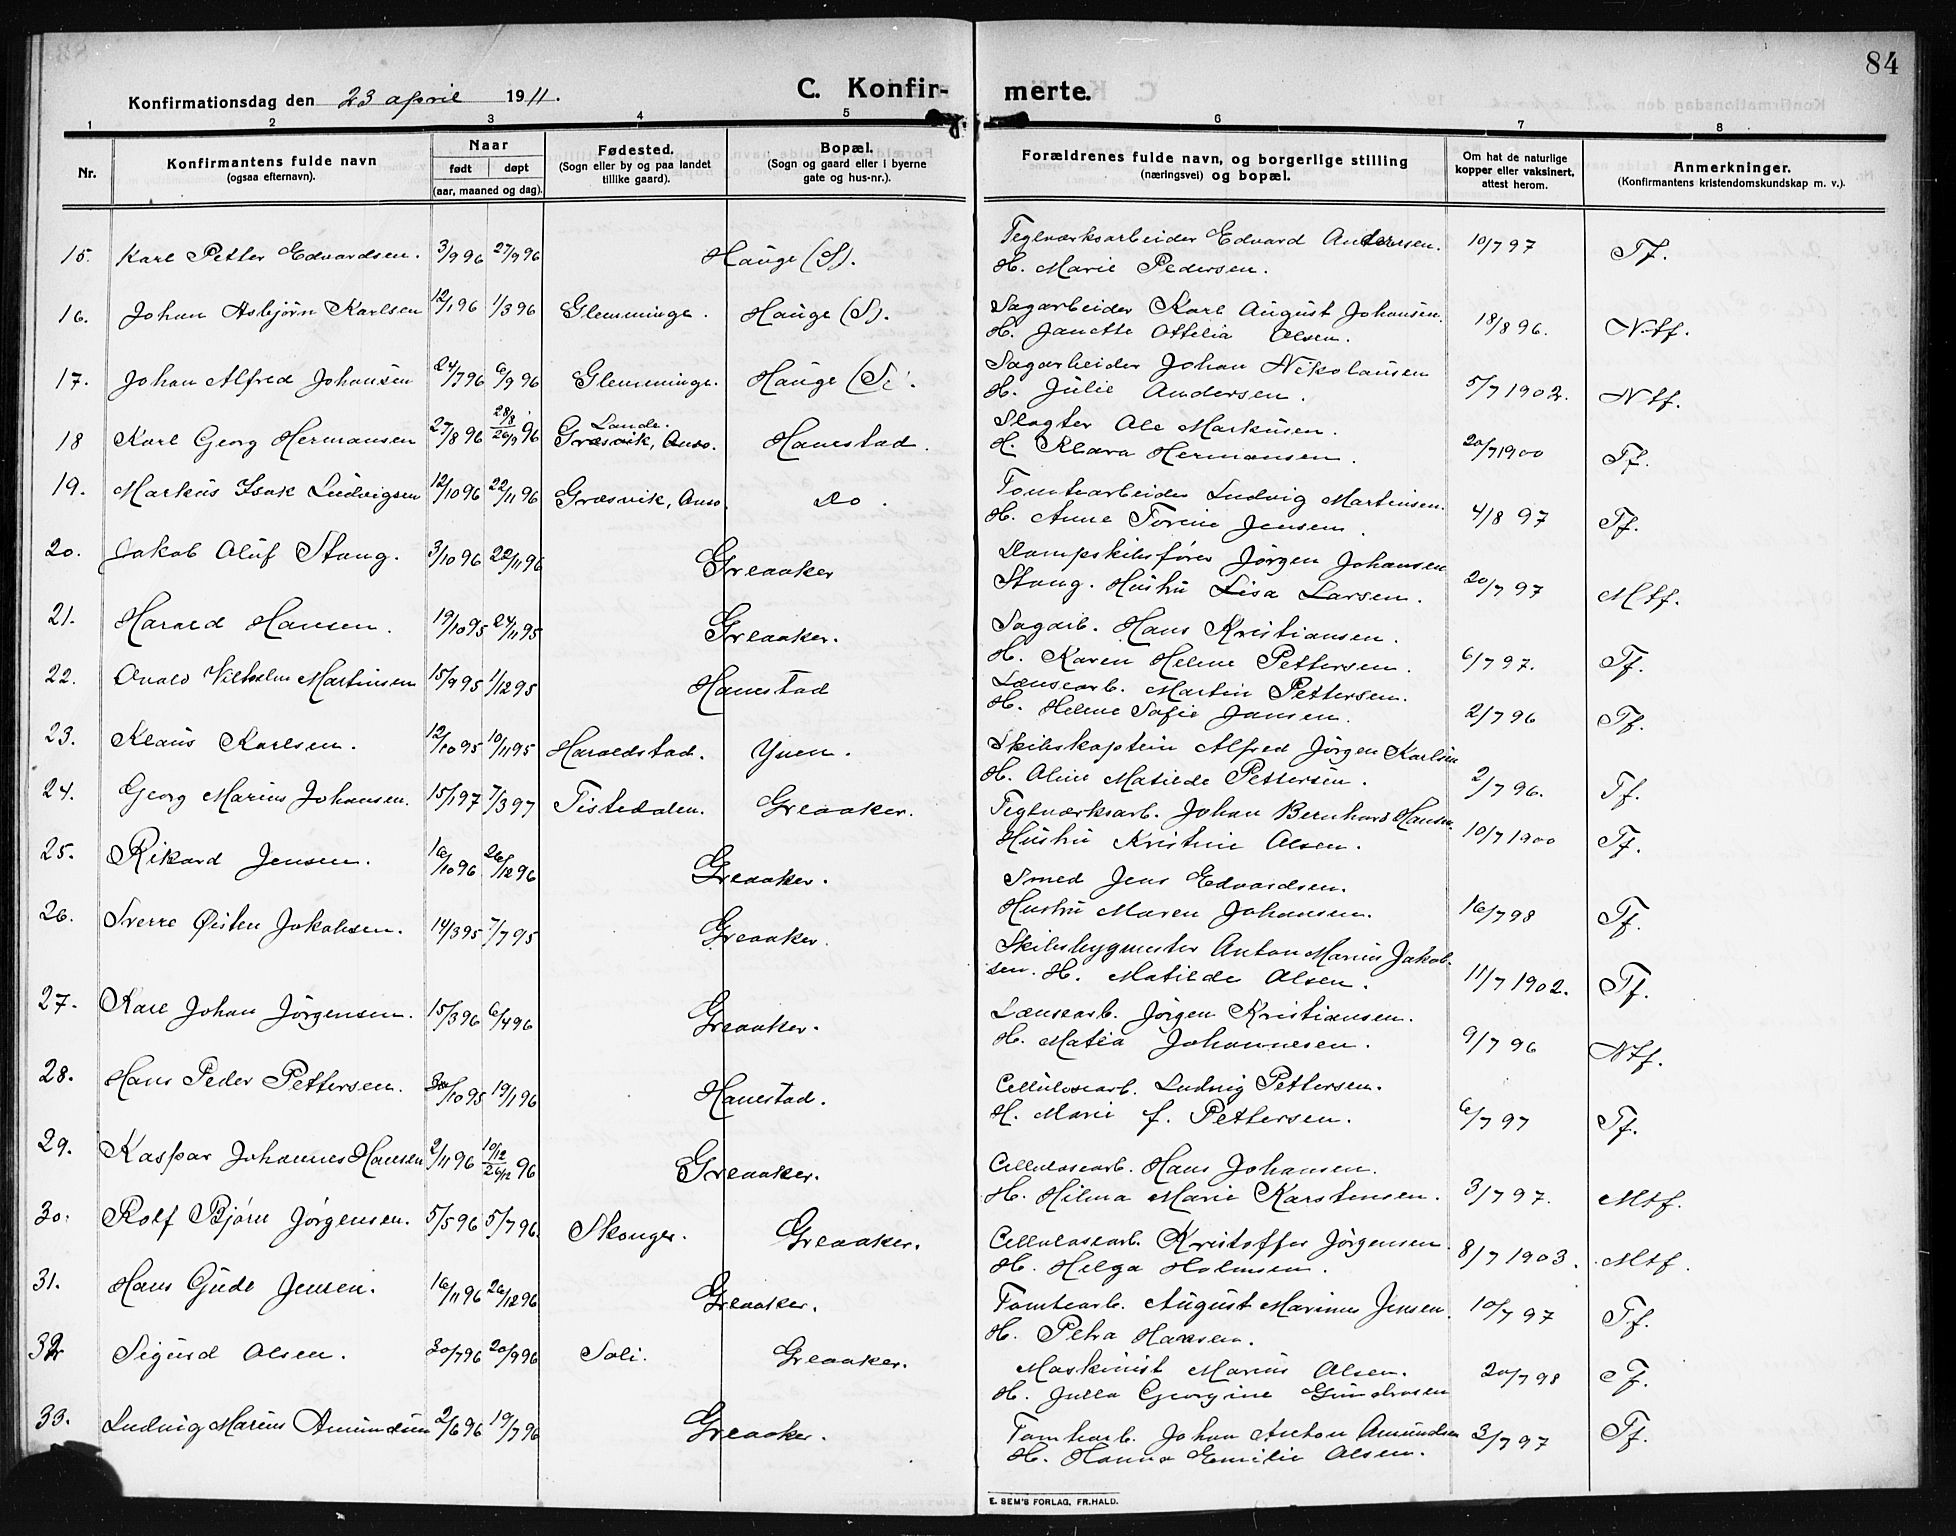 84
Konfirmationsdag den 23 april 1911.
C. Konfirmerte.
1 2 3 4 5 6 7 8
Nr.
Konfirmantens fulde navn
(ogsaa efternavn).
Naar
født døpt
(aar, maaned og dag).
Fødested.
(Sogn eller by og paa landet
tillike gaard).
Bopæl.
(Sogn og gaard eller i byerne
gate og hus-nr.).
Forældrenes fulde navn, og borgerlige stilling
(næringsvei) og bopæl.
Om hat de naturlige
kopper eller vaksinert,
attest herom.
Anmerkninger.
(Konfirmantens kristendomskundskap m. v.).
15. Karl Petter Edvardsen. 3/9 96 27/9 96 Hauge (S). Teglværksarbeider Edvard Andersen. 10/7 97 Tf.
H. Marie Pedersen.
16. Johan Asbjørn Karlsen 12/1 96 1/3 96 Glemminge. Hauge (S). Sagarbeider Karl August Johansen. 18/8 96. Ntf.
H. Janette Ottilia Olsen.
17. Johan Alfred Johansen 24/7 96 6/9 96 Glemminge. Hauge (S). Sagarbeider Johan Nikolausen 5/7 1902. Ntf.
H. Julie Andersen.
18 Karl Georg Hermansen 27/8 96 28/8 26/9 96 Lande. Græsvik, Onsø. Hanestad. Slagter Ole Markusen. 20/7 1900 Tf.
H. Klara Hermansen.
19. Markus Isak Ludvigsen 12/10 96 22/11 96 Græsvik, Onsø. Do. Tomtearbeider Ludvig Martinsen. 4/8 97 Tf.
H. Anne Torine Jensen.
20. Jakob Oluf Stang. 3/10 96 22/11 96 Greaaker Dampskibsfører Jørgen Johansen 20/7 97 Mtf.
Stang. Hustru Lisa Larsen.
21. Harald Hansen. 19/10 95 24/11 95 Greaaker. Sagarb. Hans Kristiansen. 6/7 97. Tf.
H. Karen Helene Pettersen.
22. Ovald Vilhelm Martinsen 15/9 95 1/12 95 Hanestad Lænsearb. Martin Pettersen. 2/7 96 Tf.
H. Helene Sofie Jansen.
23. Klaus Karlsen. 12/10 95 10/11 95 Haraldstad. Yven. Skibskaptein Alfred Jørgen Karlsen 2/7 96. Tf.
H. Oline Matilde Pettersen.
24. Georg Marius Johansen. 15/1 97 7/3 97 Tistedalen. Greaaker. Teglværksarb. Johan Bernhard Hansen. 10/7 1900 Tf.
Hustru Kristine Olsen.
25. Rikard Jensen. 16/10 96 26/12 96 Greaaker. Smed Jens Edvardsen. 16/7 98 Tf.
Hustru Maren Johansen.
26. Sverre Øisten Jakobsen. 14/3 95 7/7 95 Greaaker. Skibsbygmester Anton Marius Jakob- 11/7 1902. Tf.
sen. H. Matilde Olsen.
27. Karl Johan Jørgensen. 15/3 96 6/4 96 Greaaker. Lænsearb. Jørgen Kristiansen. 9/7 96 Ntf.
H. Matea Johannesen.
28. Hans Peder Pettersen. 30/10 95 19/1 96 Hanestad. Cellulosearb. Ludvig Pettersen. 6/7 97 Tf.
H. Marie f. Pettersen.
29. Kaspar Johannes Hansen 2/11 96 10/12 26/12 96 Greaaker. Cellulosearb. Hans Johansen. 3/7 97. Mtf.
H. Hilma Marie Karstensen.
30. Rolf Bjørn Jørgensen. 5/5 96 5/7 96. Skonger. Greaaker. Cellulosearb. Kristoffer Jørgensen. 8/7 1903. Mtf.
H. Helga Holmsen.
31. Hans Gude Jensen. 16/11 96 26/12 96 Greaaker. Tomtearb. August Marinus Jensen. 10/7 97 Tf.
H. Petra Hansen.
32 Sigurd Olsen. 30/7 96 20/9 96 Soli. Greaaker. Maskinist Marius Olsen. 20/7 98 Tf.
H. Julla Georgine Gundersen
33. Ludvig Marius Amundsen 2/6 96 19/7 96 Greaaker. Tomtearb. Johan Anton Amundsen 3/7 97 Tf.
H. Hanna Emilie Olsen.
E. SEM'S FORLAG, FR.HALD.